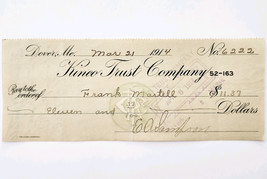 Dover, Me. Mar 21 1914 No. 6222
Kineo Trust Company 52-163
Pay to the order of Frank Martell $11.
Eleven and Dollars